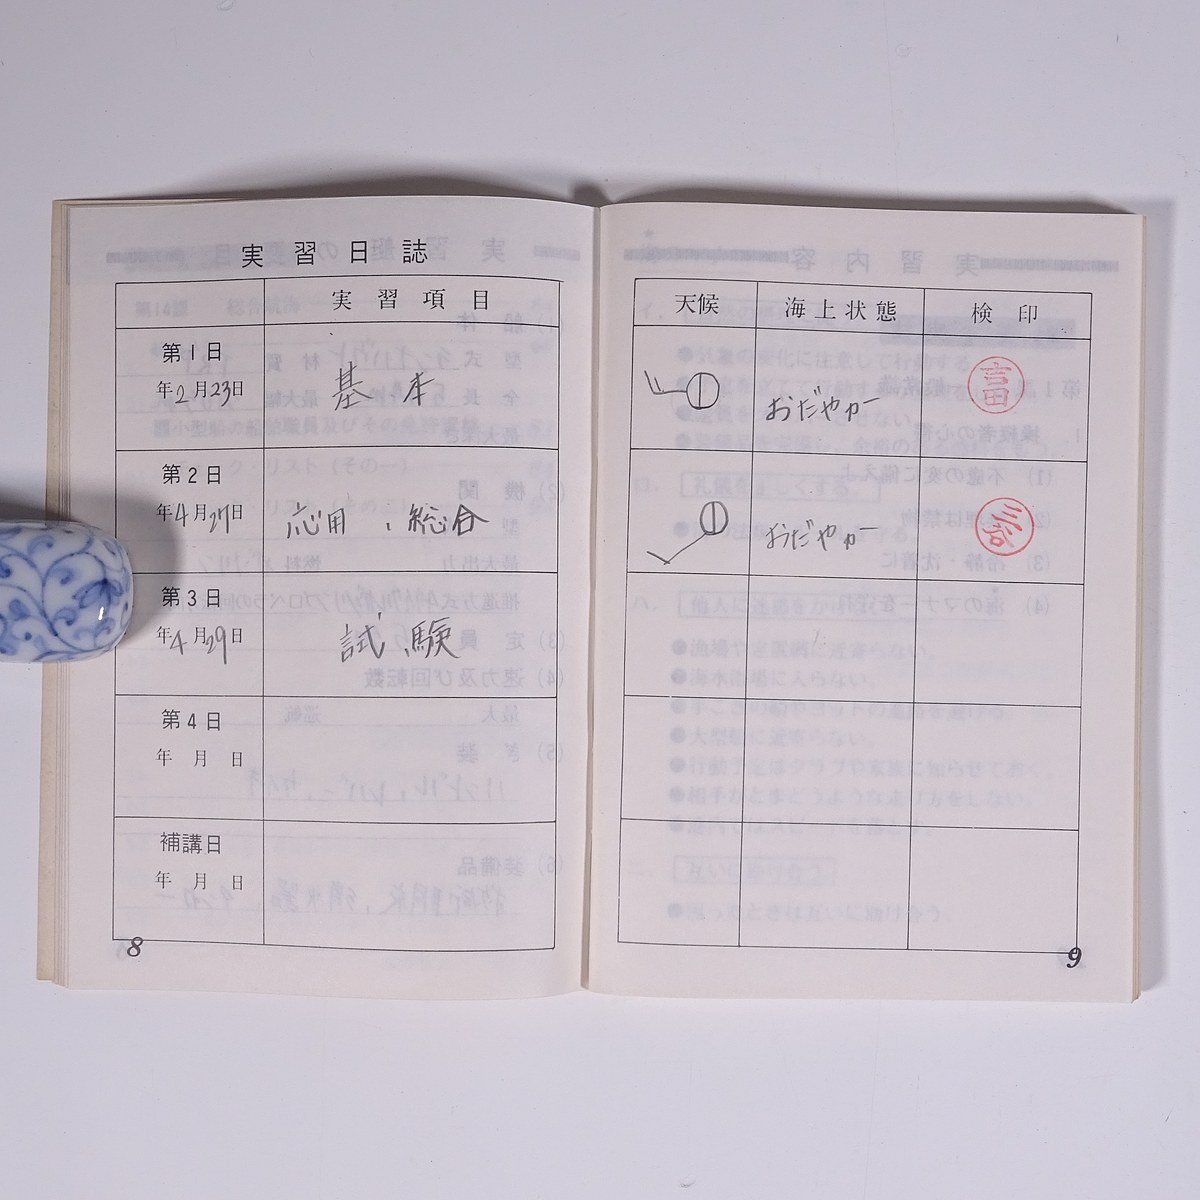 実習日誌
実習項目
第1日
年2月23日
基本
第2日
年4月27日
応用、総合
第3日
年4月29日
試験
第4日
年 月 日
補講日
年 月 日
8
天候 海上状態 検印
おだやか
おだやか
三谷
9